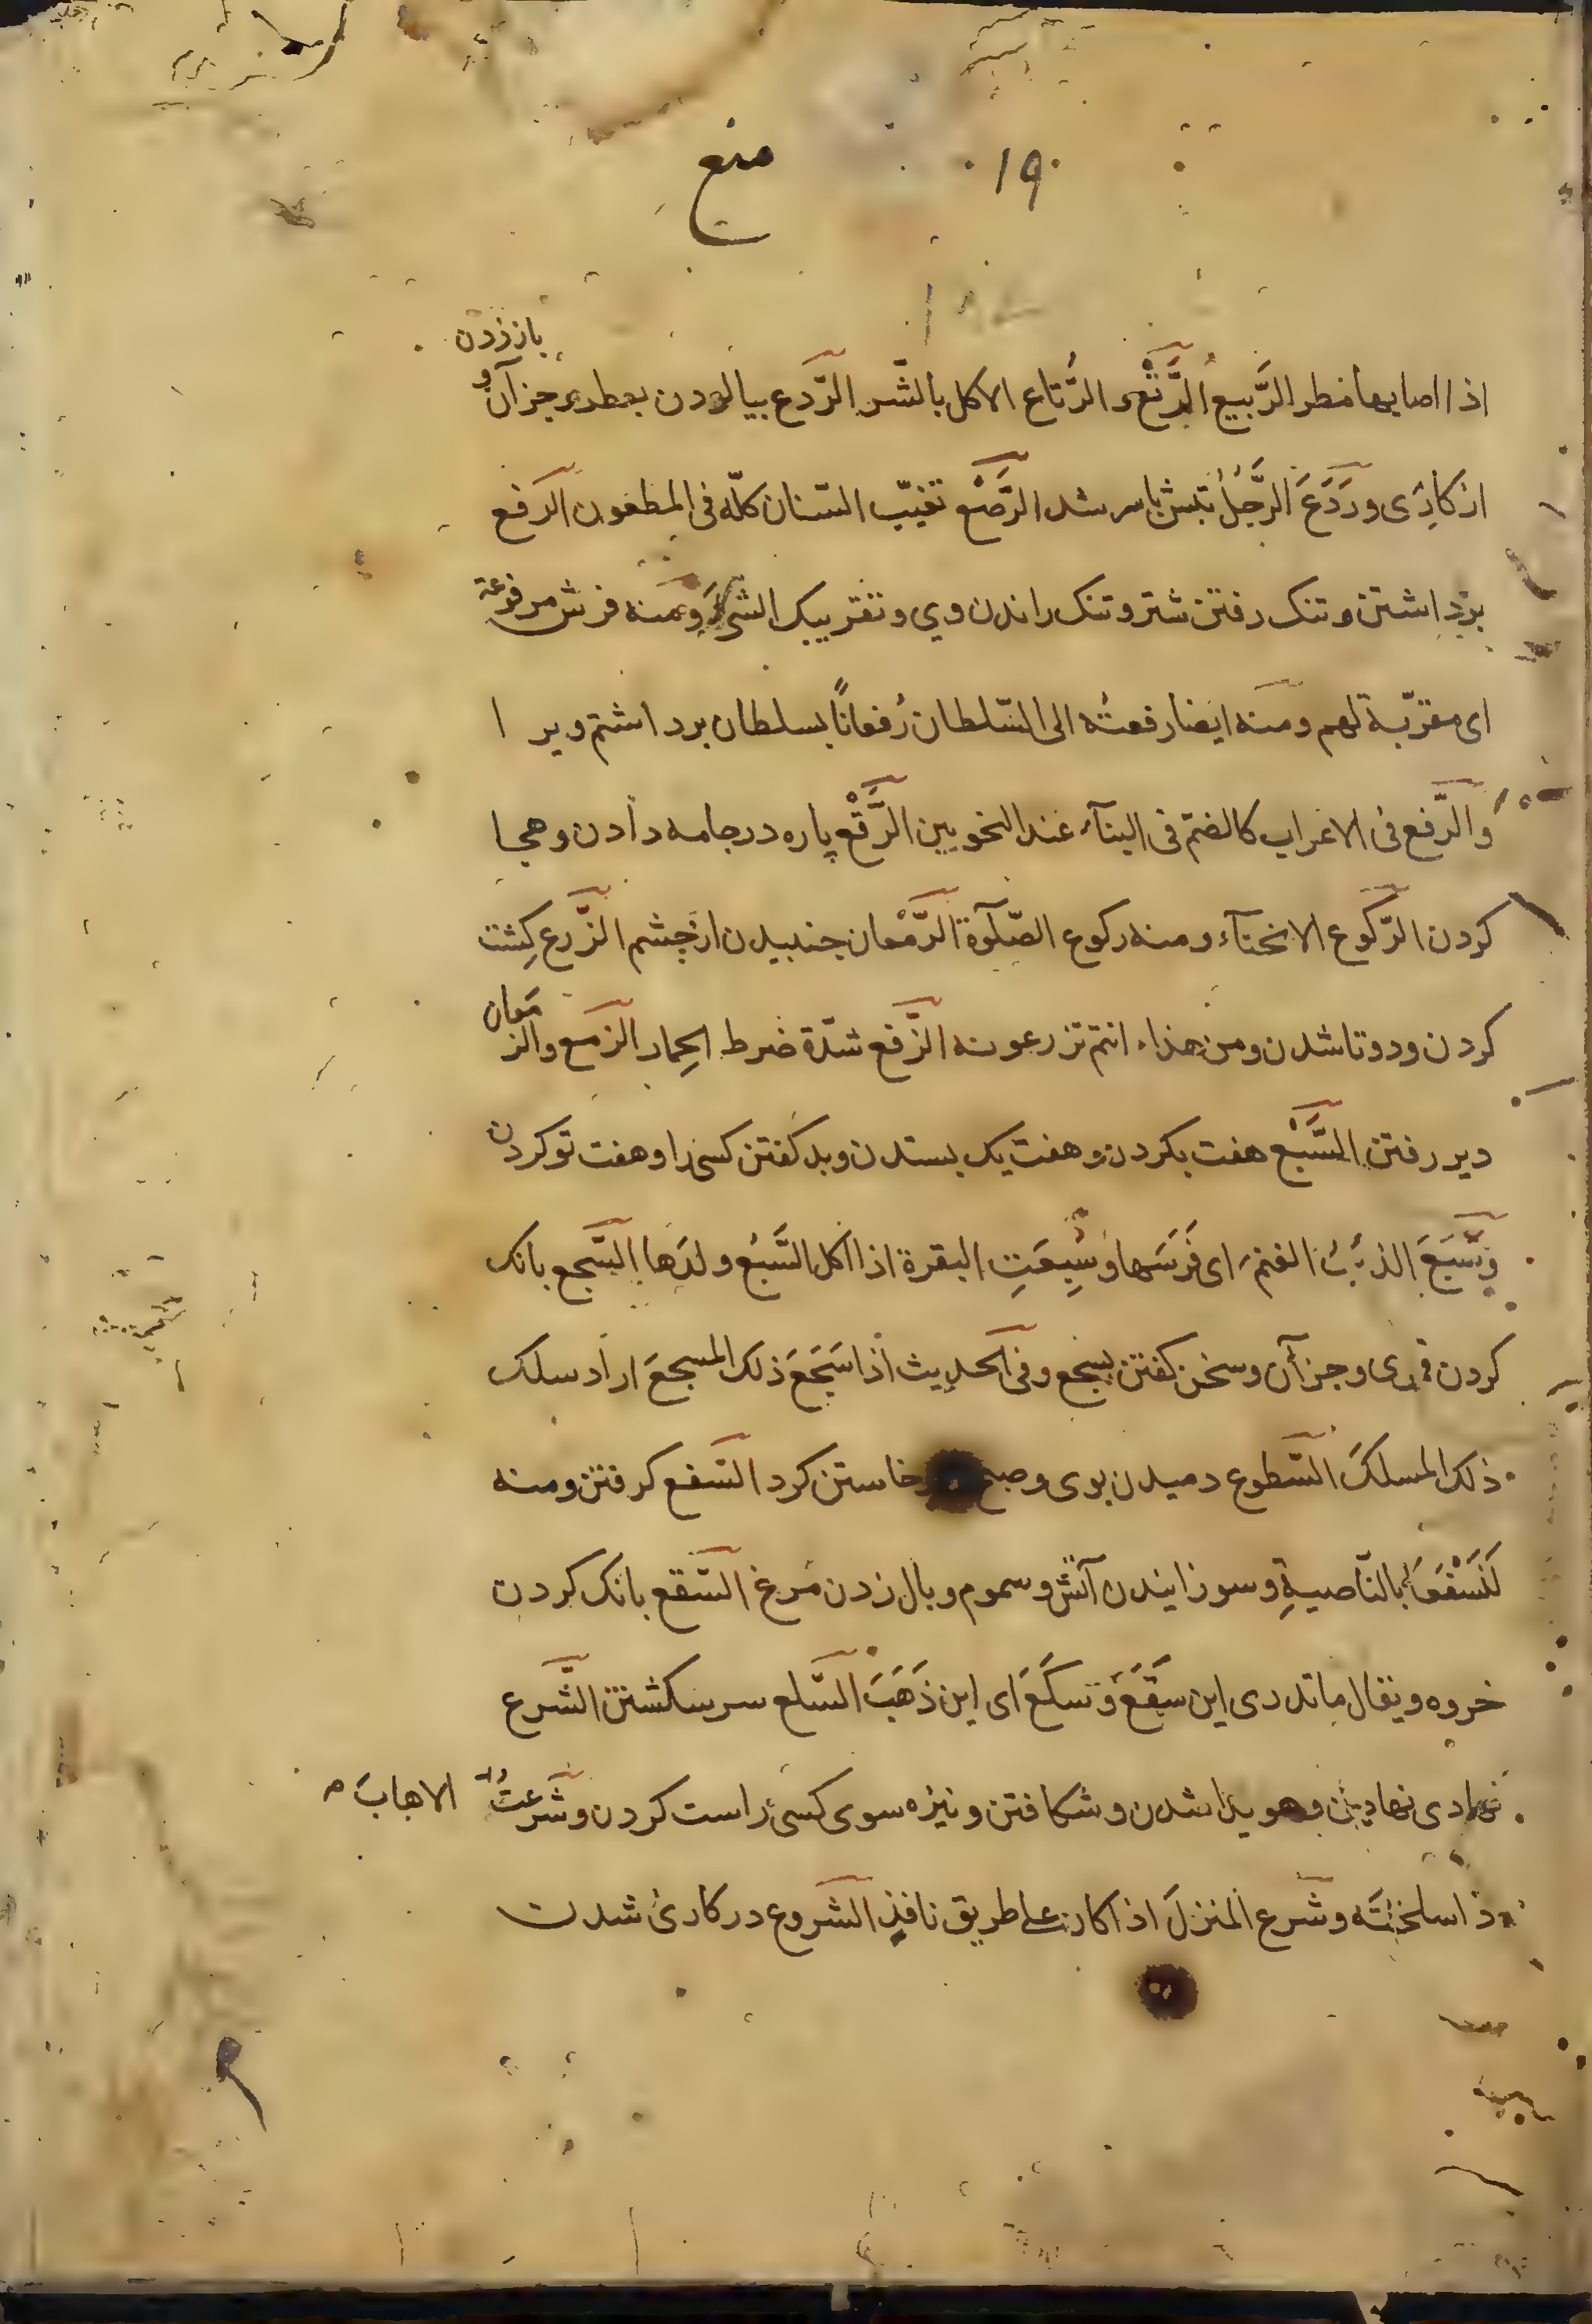 ۱۹۰ منع
باززدن
اذا اصابها مطر الرَّبیع الرَّتْع و الرُّتاع الاکل بالشّره الرَّدع بیالودن بعطر و جز آن و
از کاری و رَدَعَ الرَّجُلُ تبش با سر شد الرَّصْع تغییب السّنان کلّه فی المطعون الرفع
برداشتن و تنک رفتن شتر و تنک راندن وی و تقریبک الشیء و منه فرش مرفوعة
ای مقرّبة لهم و منه ایضا رفعتُه الی السّلطان رُفعانًا بسلطان برداشتم ویرا
والرَّفع فی الاعراب کالضمّ فی البنآء عند النحویین الرَّقْع پاره در جامه دادن و هجا
کردن الرّکوع الانحنآء و منه رکوع الصّلوٰة الرَّمَعان جنبیدن از چشم الزّرع کِشت
کردن و دوتا شدن و من هذا ءانتم تزرعونه الزَّقع شدّة ضرط الحِمار الزمع والزمَعان
دیر رفتن السَّبْع هفت بکردن و هفت یک بستدن و بد کفتن کسی را و هفت تو کردن
و سَبَعَ الذئبُ الغنمَ ای فَرَسَها و سُبِعَتِ البقرة اذا اکل السَّبُع ولدَها السَّجع بانک
کردن قمری و جز آن و سخن کفتن بسجع و فی الحدیث اذا سَجَعَ ذلک المسجعَ اراد سلک
ذلک المسلکَ السّطوع دمیدن بوی و صبح و خاستن کرد السّفع کرفتن و منه
لَنَسْفَعًا بالنّاصیةِ و سوزانیدن آتش و سموم و بال زدن مرغ السّقع بانک کردن
خروه و یقال ما تدری این سَقَعَ و سَکَعَ ای این ذَهَبَ السَّلع سر شکستن الشّرع
نهادی نهادن و هویدا شدن و شکافتن و نیزه سوی کسی راست کردن و شَرَعتُ الاهابَ
اذا سلختَه و شرع المنزلَ اذا کان علی طریق نافذ الشروع در کاری شدن